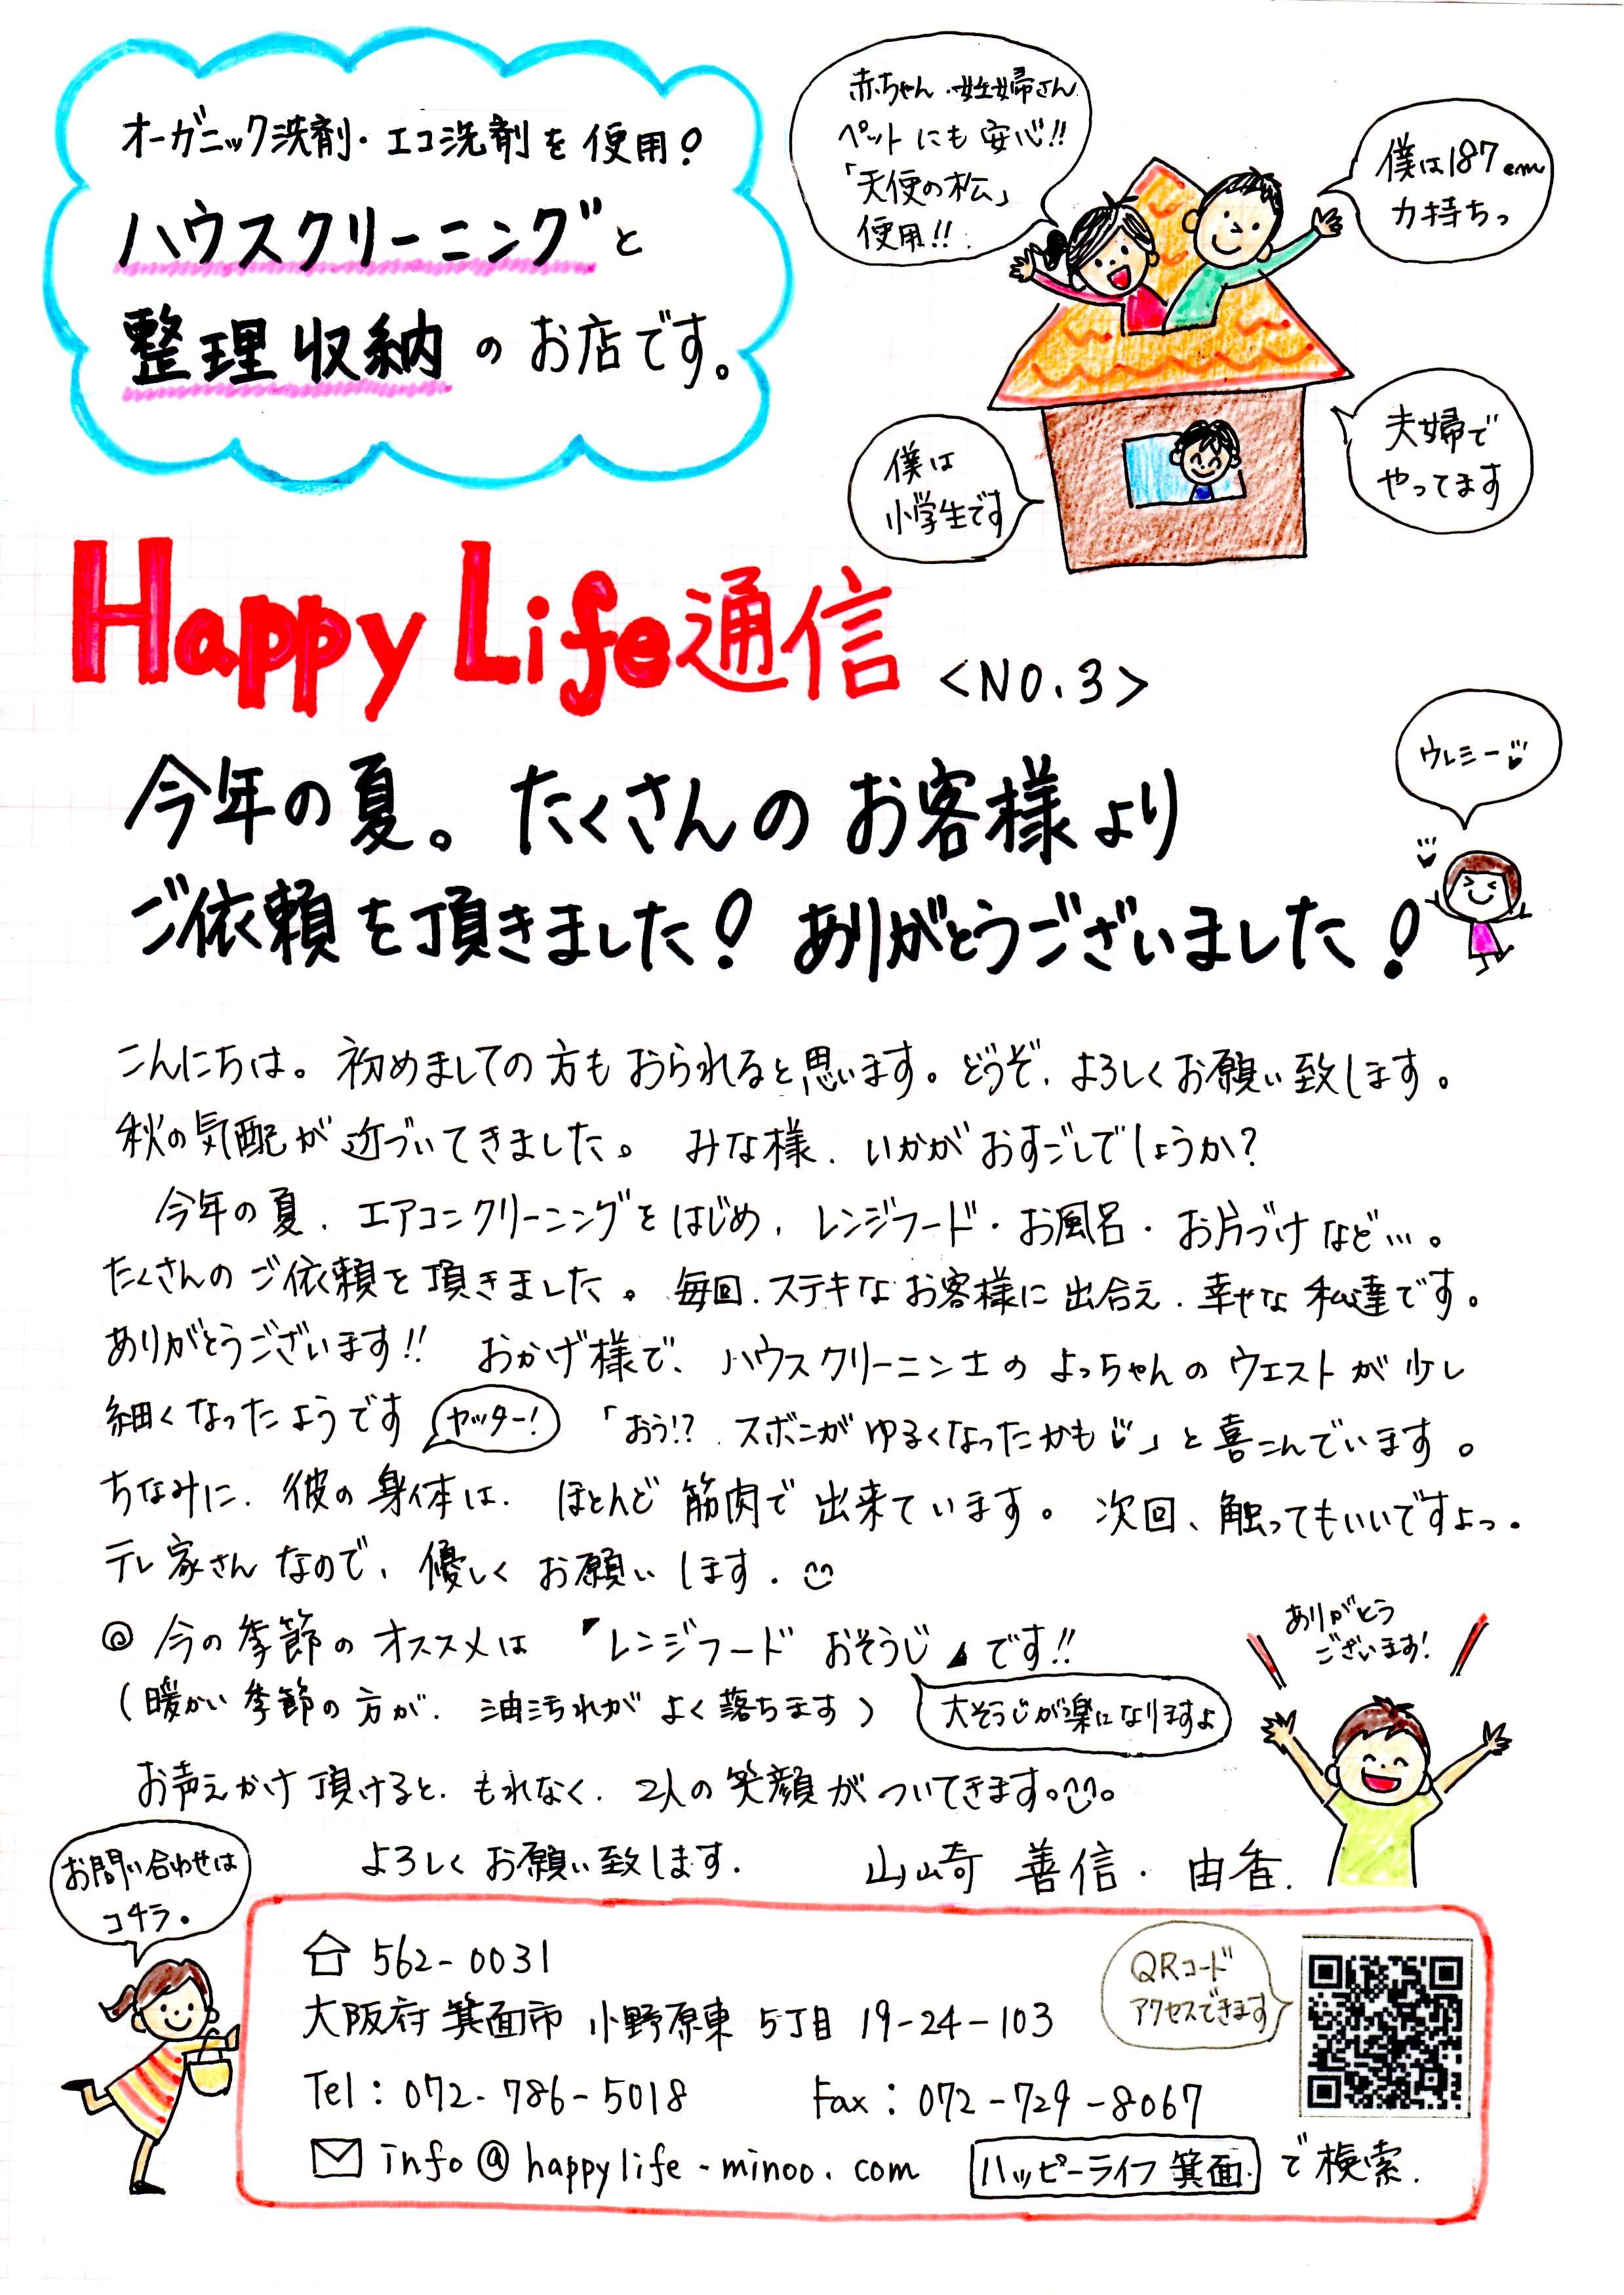 オーガニック洗剤・エコ洗剤を使用!
ハウスクリーニングと
整理収納のお店です。
赤ちゃん・妊婦さん
ペットにも安心!!
「天使の松」
使用!!
僕は187cm
力持ちっ
僕は
小学生です
夫婦で
やってます
Happy Life通信 <NO.3>
ウレシー
今年の夏。たくさんのお客様より
ご依頼を頂きました!ありがとうございました!
こんにちは。初めましての方もおられると思います。どうぞ、よろしくお願い致します。
秋の気配が近づいてきました。みな様、いかがおすごしでしょうか?
今年の夏、エアコンクリーニングをはじめ、レンジフード・お風呂・お片づけなど…。
たくさんのご依頼を頂きました。毎回、ステキなお客様に出合え、幸せな私達です。
ありがとうございます!! おかげ様で、ハウスクリーニン士のよっちゃんのウエストが少し
細くなったようです ヤッター! 「おう!?、ズボンがゆるくなったかも」と喜こんでいます。
ちなみに、彼の身体は、ほとんど筋肉で出来ています。次回、触ってもいいですよっ。
テレ家さんなので、優しくお願いします。
◎今の季節のオススメは『レンジフードおそうじ』です!!
(暖かい季節の方が、油汚れがよく落ちます)
大そうじが楽になりますよ
ありがとう
ございます!
お声えかけ頂けると、もれなく、2人の笑顔がついてきます。
よろしくお願い致します。 山﨑 善信・由香.
お問い合わせは
コチラ。
562-0031
大阪府箕面市小野原東5丁目19-24-103
QRコード
アクセスできます
Tel:072-786-5018 Fax:072-729-8067
info@happylife-minoo.com ハッピーライフ 箕面 で検索.